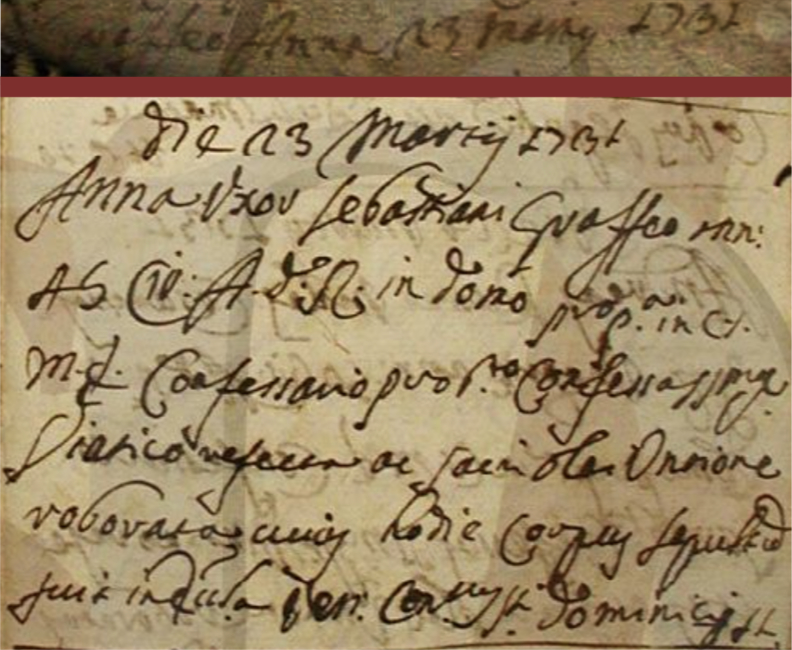 Graffeo Anna 23 Martij 1731
Die 23 Martij 1731
Anna Vxor Sebastiani Graffeo ann:
45 Cir: A. S. R. in domo prop.a in C.
M. E. Confessario pro p.to Confessa SSmoq.
Viatico refecta ac sacri olei Unctione
roborata cuius hodie Corpus sepultũ
fuit in Eccl.a Ven. Con.tus S.ti Dominici